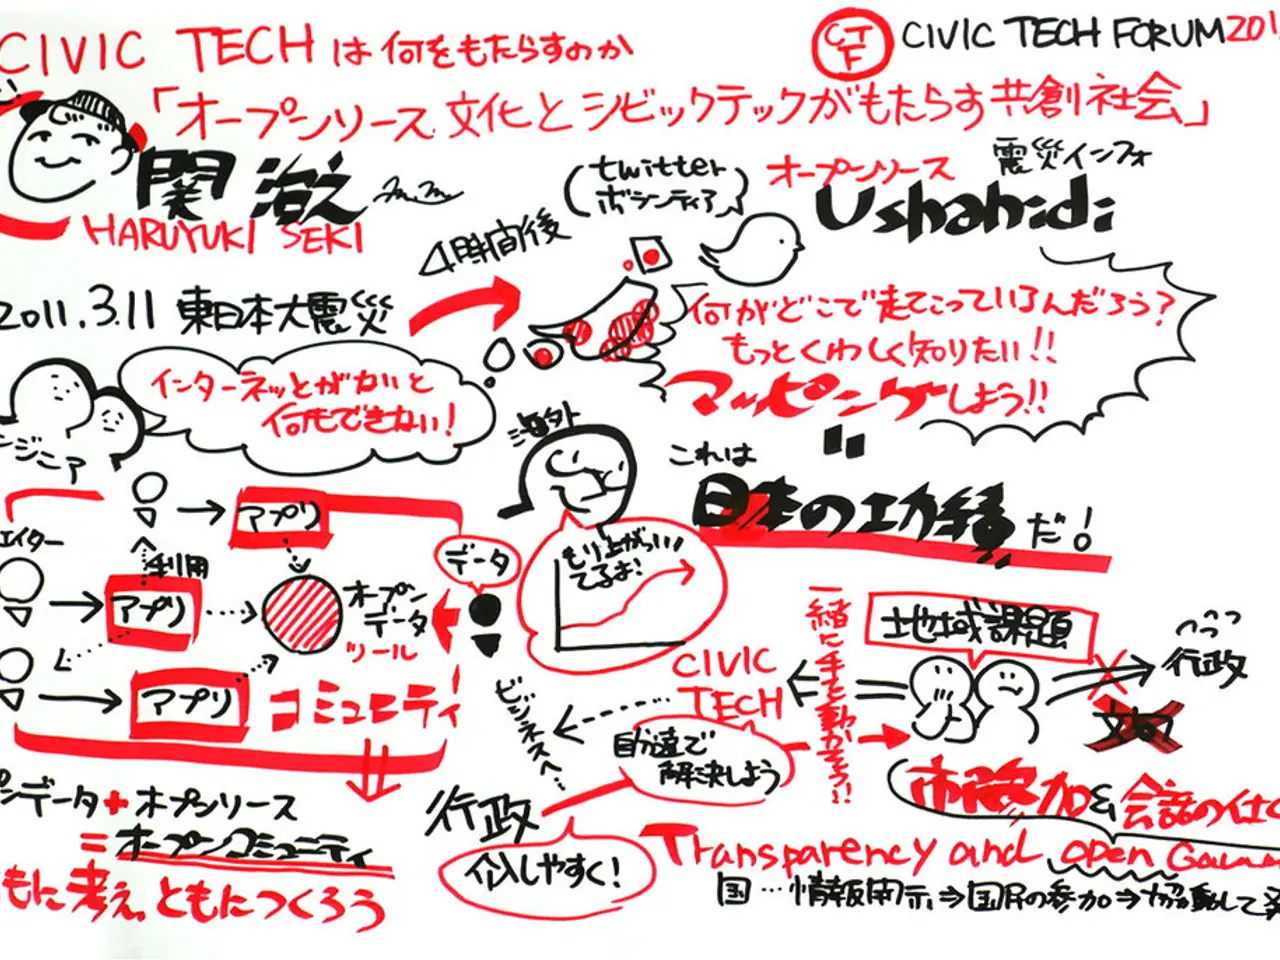 CIVIC TECHは何をもたらすのか
CTF
CIVIC TECH FORUM 201
「オープンソース文化とシビックテックがもたらす共創社会」
関 治之
HARUYUKI SEKI
twitter
ボランティア
オープンソース
震災インフォ
Ushahidi
4時間後
2011.3.11 東日本大震災
何がどこで起こっているんだろう?
もっとくわしく知りたい!!
マッピングしよう!!
インターネットがないと
何もできない!
ジニア
海外
これは
日本の功績だ!
もり上がっい
てるよ!
アプリ
エイター
利用
アプリ
データ
オープン
データ
ツール
アプリ
コミュニティ
ビジネスへ…
CIVIC
TECH
一緒に手を動かそう!!
地域課題
行政
文句
自分達で
解決しよう
市民参加&会話のしく
ンデータ+オプンソース
=オープンコミュニティ
もに考え。ともにつくろう
行政
介入しやすく!
Transparency and open Gove
国…情報開示⇒国民の参加⇒協働して発